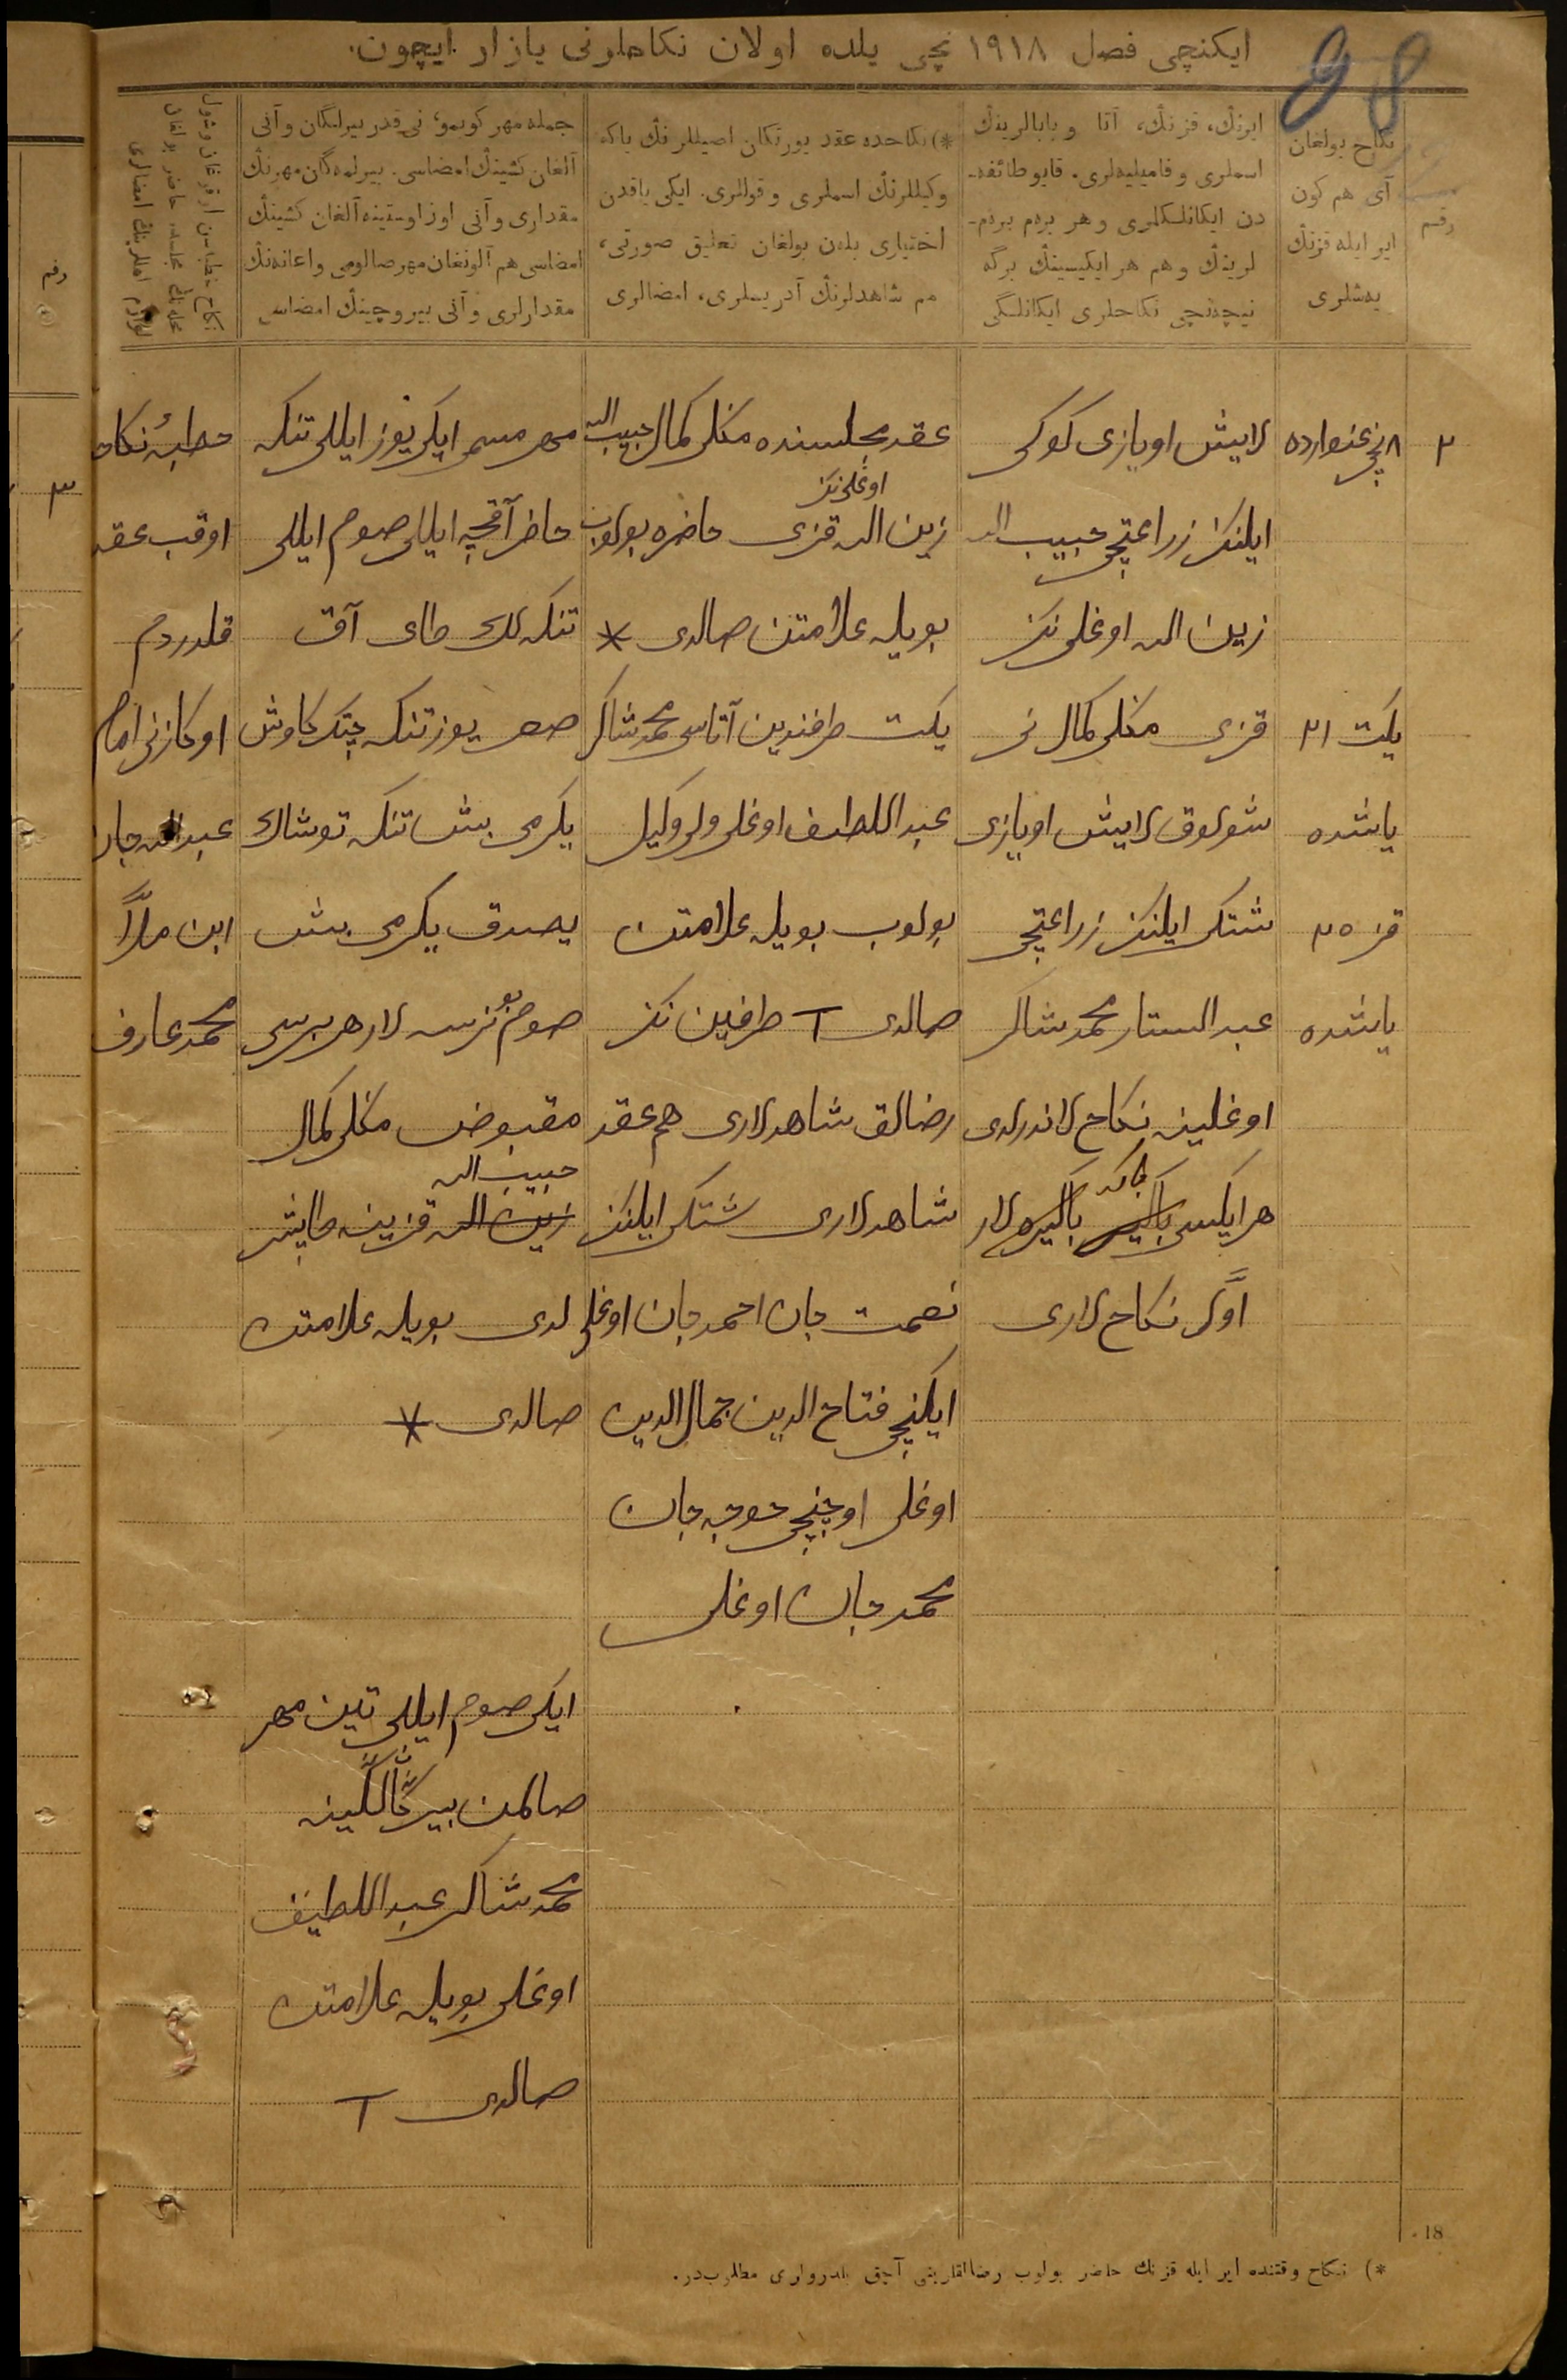 ایکنچی فصل ۱۹۱۸ نچی یلده اولان نکاحلرنی یازار ایچون.
98
رقم
نکاح بولغان
آی هم کون
ایر ایله قزنڭ
یەشلری
ایرنڭ، قزنڭ، آتا و بابالرینڭ
اسملری و فامیلیەلری. قایو طائفه‌-
دن ایکانلکلری و هر بردم بردم-
لرینڭ و هم هر ایکیسینڭ برگه
نیچەنچی نکاحلری ایکانلگی
*) نکاحده عقد یورتکان اصیللرنڭ یاکه
وکیللرنڭ اسملری و قوللری. ایکی یاقدن
اختیاری بلەن بولغان تعلیق صورتی،
هم شاهدلرنڭ آدریسلری، امضالری
جمله مهر کوبمو، نی قدر بیرلگان وآنی
آلغان کشینڭ امضاسی. بیرلمەگان مهرنڭ
مقداری وآنی اوز اوستینه آلغان کشینڭ
امضاسی هم آلونغان مهر صالومی واعانەنڭ
مقدارلری وآنی بیروچینڭ امضاسی
رقم
۲
۸نچی غنوارده
یکت ۲۱
یاشده
قز ۲۵
یاشده
لایش اویازی کوکی
ایلنڭ زراعتچی حبیب الله
زین الله اوغلی نڭ
قزی منکلی کمال نی
شولوق لایش اویازی
شتکی ایلنڭ زراعتچی
عبد الستار محمد شاکر
اوغلینه نکاح لاندرلدی
هر ایکیسی باکره لار
اوّل نکاح لاری
عقد مجلسنده منکلی کمال حبیب الله
اوغلی نڭ
زین الله قزی حاضره بولوب
بویله علامتن صالدی *
یکت طرفندین آتاسی محمد شاکر
عبد اللطیف اوغلی ولی وکیل
بولوب بویله علامتن
صالدی T طرفین نڭ
رضالق شاهدلاری هم عقد
شاهدلاری شتکی ایلنڭ
نعمت جان احمد جان اوغلی
ایکنچی فتاح الدین جمال الدین
اوغلی اوچنچی خوجه جان
محمد جان اوغلی
مهر مسمی ایکی یوز ایللی تنکه
حاضر آقچه ایللی صوم ایللی
تنکه لک طای آق
یوز تنکه چتک کاوش
یکرمی بش تنکه توشاک
یصدق یکرمی بش
صوم بو نرسه لار هر برسی
مقبوض منکلی کمال
حبیب الله
زین الله قزینه طابش
لدی بویله علامتن
صالدی *
ایکی صوم ایللی تین مهر
صالمن
محمد شاکر عبد اللطیف
اوغلی بویله علامتن
صالدی T
خطبهٔ نکاح
اوقب عقد
قلدردم
اوکازنی امام
عبد الله جان
ابن ملاّ
محمد عارف
رقم
۳
18
*) نکاح وقتنده ایر ایله قزنڭ حاضر بولوب رضالقلرینی آچق بلدرولری مطلوب‌در.